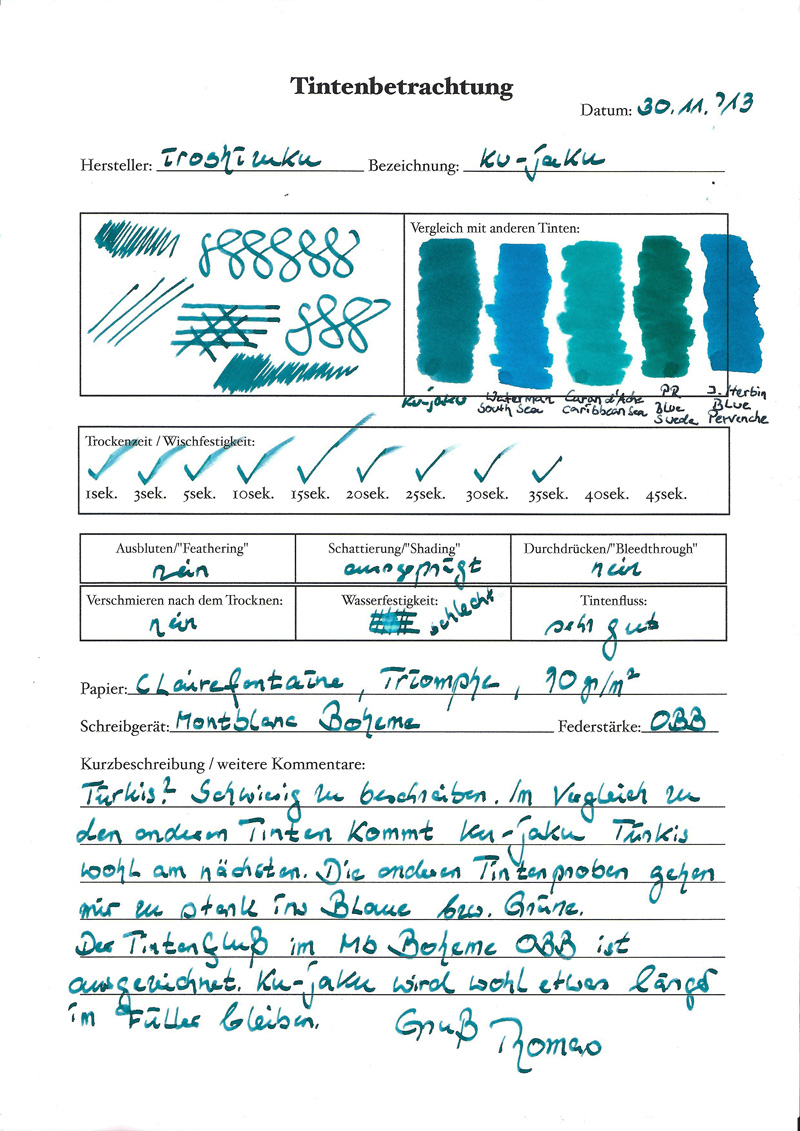 Tintenbetrachtung
Datum: 30.11.'13
Hersteller: Iroshizuku Bezeichnung: Ku-jaku
Vergleich mit anderen Tinten:
Ku-jaku
Waterman South Sea
Caran d'Ache Caribbean Sea
PR Blue Suede
J. Herbin Blue Pervenche
Trockenzeit / Wischfestigkeit:
1sek. 3sek. 5sek. 10sek. 15sek. 20sek. 25sek. 30sek. 35sek. 40sek. 45sek.
Ausbluten/"Feathering" Schattierung/"Shading" Durchdrücken/"Bleedthrough"
nein ausgeprägt nein
Verschmieren nach dem Trocknen: Wasserfestigkeit: Tintenfluss:
nein schlecht sehr gut
Papier: Clairefontaine, Triomphe, 90 gr/m²
Schreibgerät: Montblanc Boheme Federstärke: OBB
Kurzbeschreibung / weitere Kommentare:
Türkis? Schwierig zu beschreiben. Im Vergleich zu
den anderen Tinten kommt Ku-jaku Türkis
wohl am nächsten. Die anderen Tintenproben gehen
mir zu stark ins Blaue bzw. Grüne.
Der Tintenfluß im Mb Boheme OBB ist
ausgezeichnet. Ku-jaku wird wohl etwas länger
im Füller bleiben. Gruß Romeo